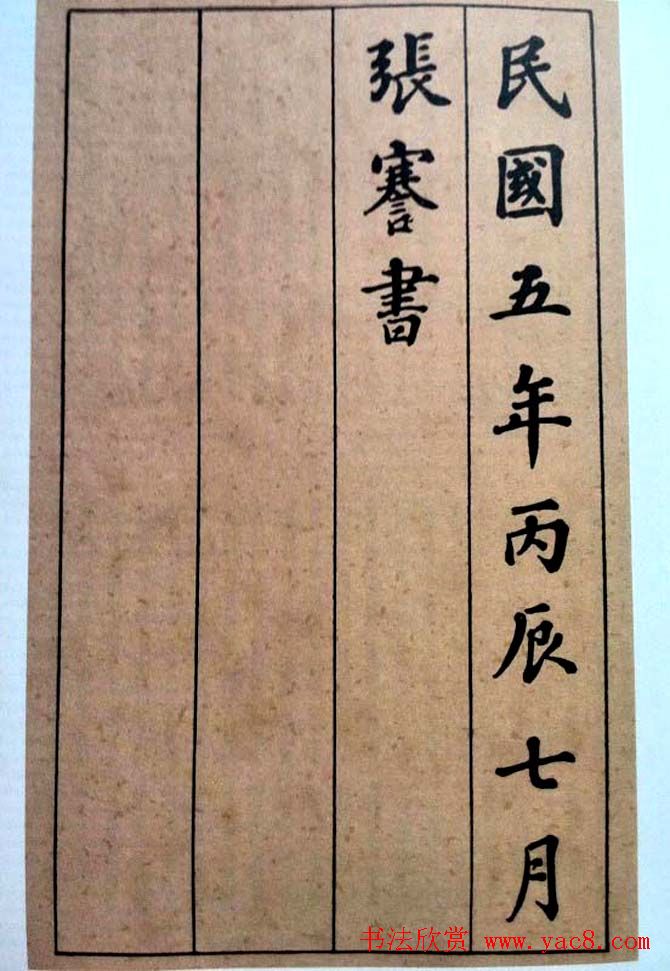 民國五年丙辰七月
張謇書
书法欣赏 www.yac8.com